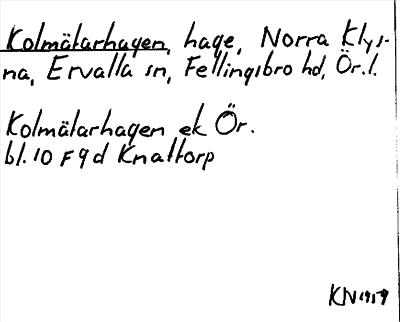 Kolmätarhagen, hage, Norra Klys-
na, Ervalla sn, Fellingsbro hd, Ör. l.
Kolmätarhagen ek Ör.
bl. 10 F 9 d Knattorp
KN 1959